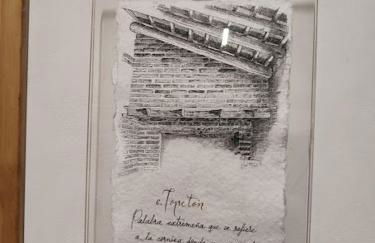 c. Topetón
Palabra extremeña que se refiere
a la cornisa donde